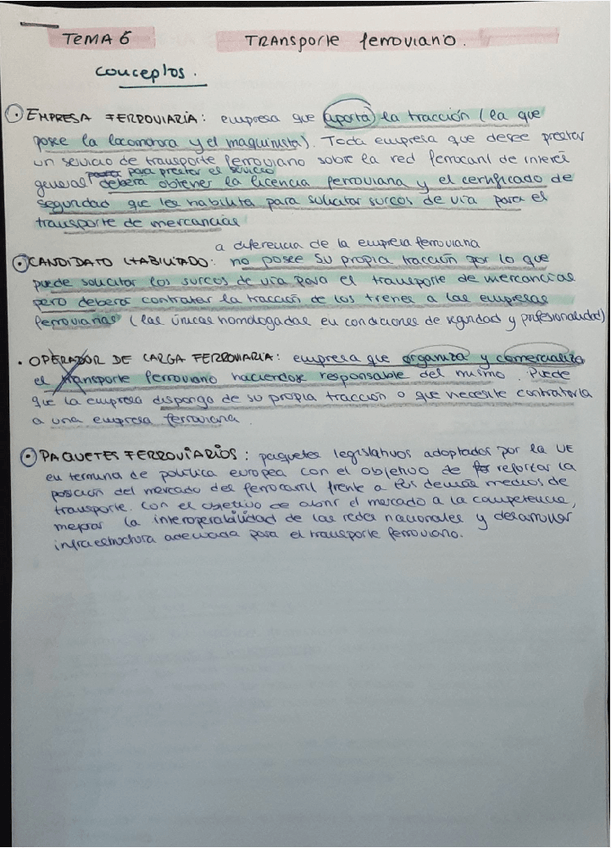 TEMA 6 TRANSPORTE FERROVIARIO.
CONCEPTOS.
EMPRESA FERROVIARIA: empresa que aporta la tracción (la que
posee la locomotora y el maquinista). Toda empresa que desee prestar
un servicio de transporte ferroviario sobre la red ferrocarril de interés
para prestar el servicio
general deberá obtener la licencia ferroviaria y el certificado de
seguridad que les habilita para solicitar surcos de vía para el
transporte de mercancías
a diferencia de la empresa ferroviaria
CANDIDATO HABILITADO: no posee su propia tracción por lo que
puede solicitar los surcos de vía para el transporte de mercancías
pero deberá contratar la tracción de los trenes a las empresas
ferroviarias (las únicas homologadas en condiciones de seguridad y profesionalidad)
OPERADOR DE CARGA FERROVIARIA: empresa que organiza y comercializa
el transporte ferroviario haciendose responsable del mismo. Puede
que la empresa disponga de su propia tracción o que necesite contratarla
a una empresa ferroviaria.
PAQUETES FERROVIARIOS: paquetes legislativos adoptados por la UE
en termina de política europea con el objetivo de reforzar la
posición del mercado del ferrocarril frente a los demás medios de
transporte. Con el objetivo de abrir el mercado a la competencia,
mejorar la interoperabilidad de las redes nacionales y desarrollar
infraestructura adecuada para el transporte ferroviario.